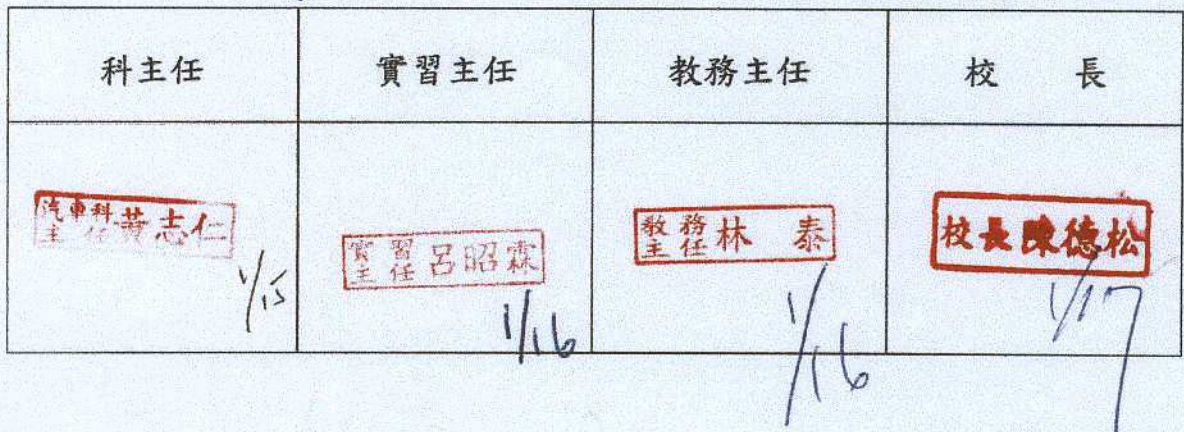 科主任
實習主任
教務主任
校 長
汽車科
主 任
黃志仁
1/15
實習
主任
呂昭霖
1/16
教務
主任
林 泰
1/16
校長陳德松
1/17